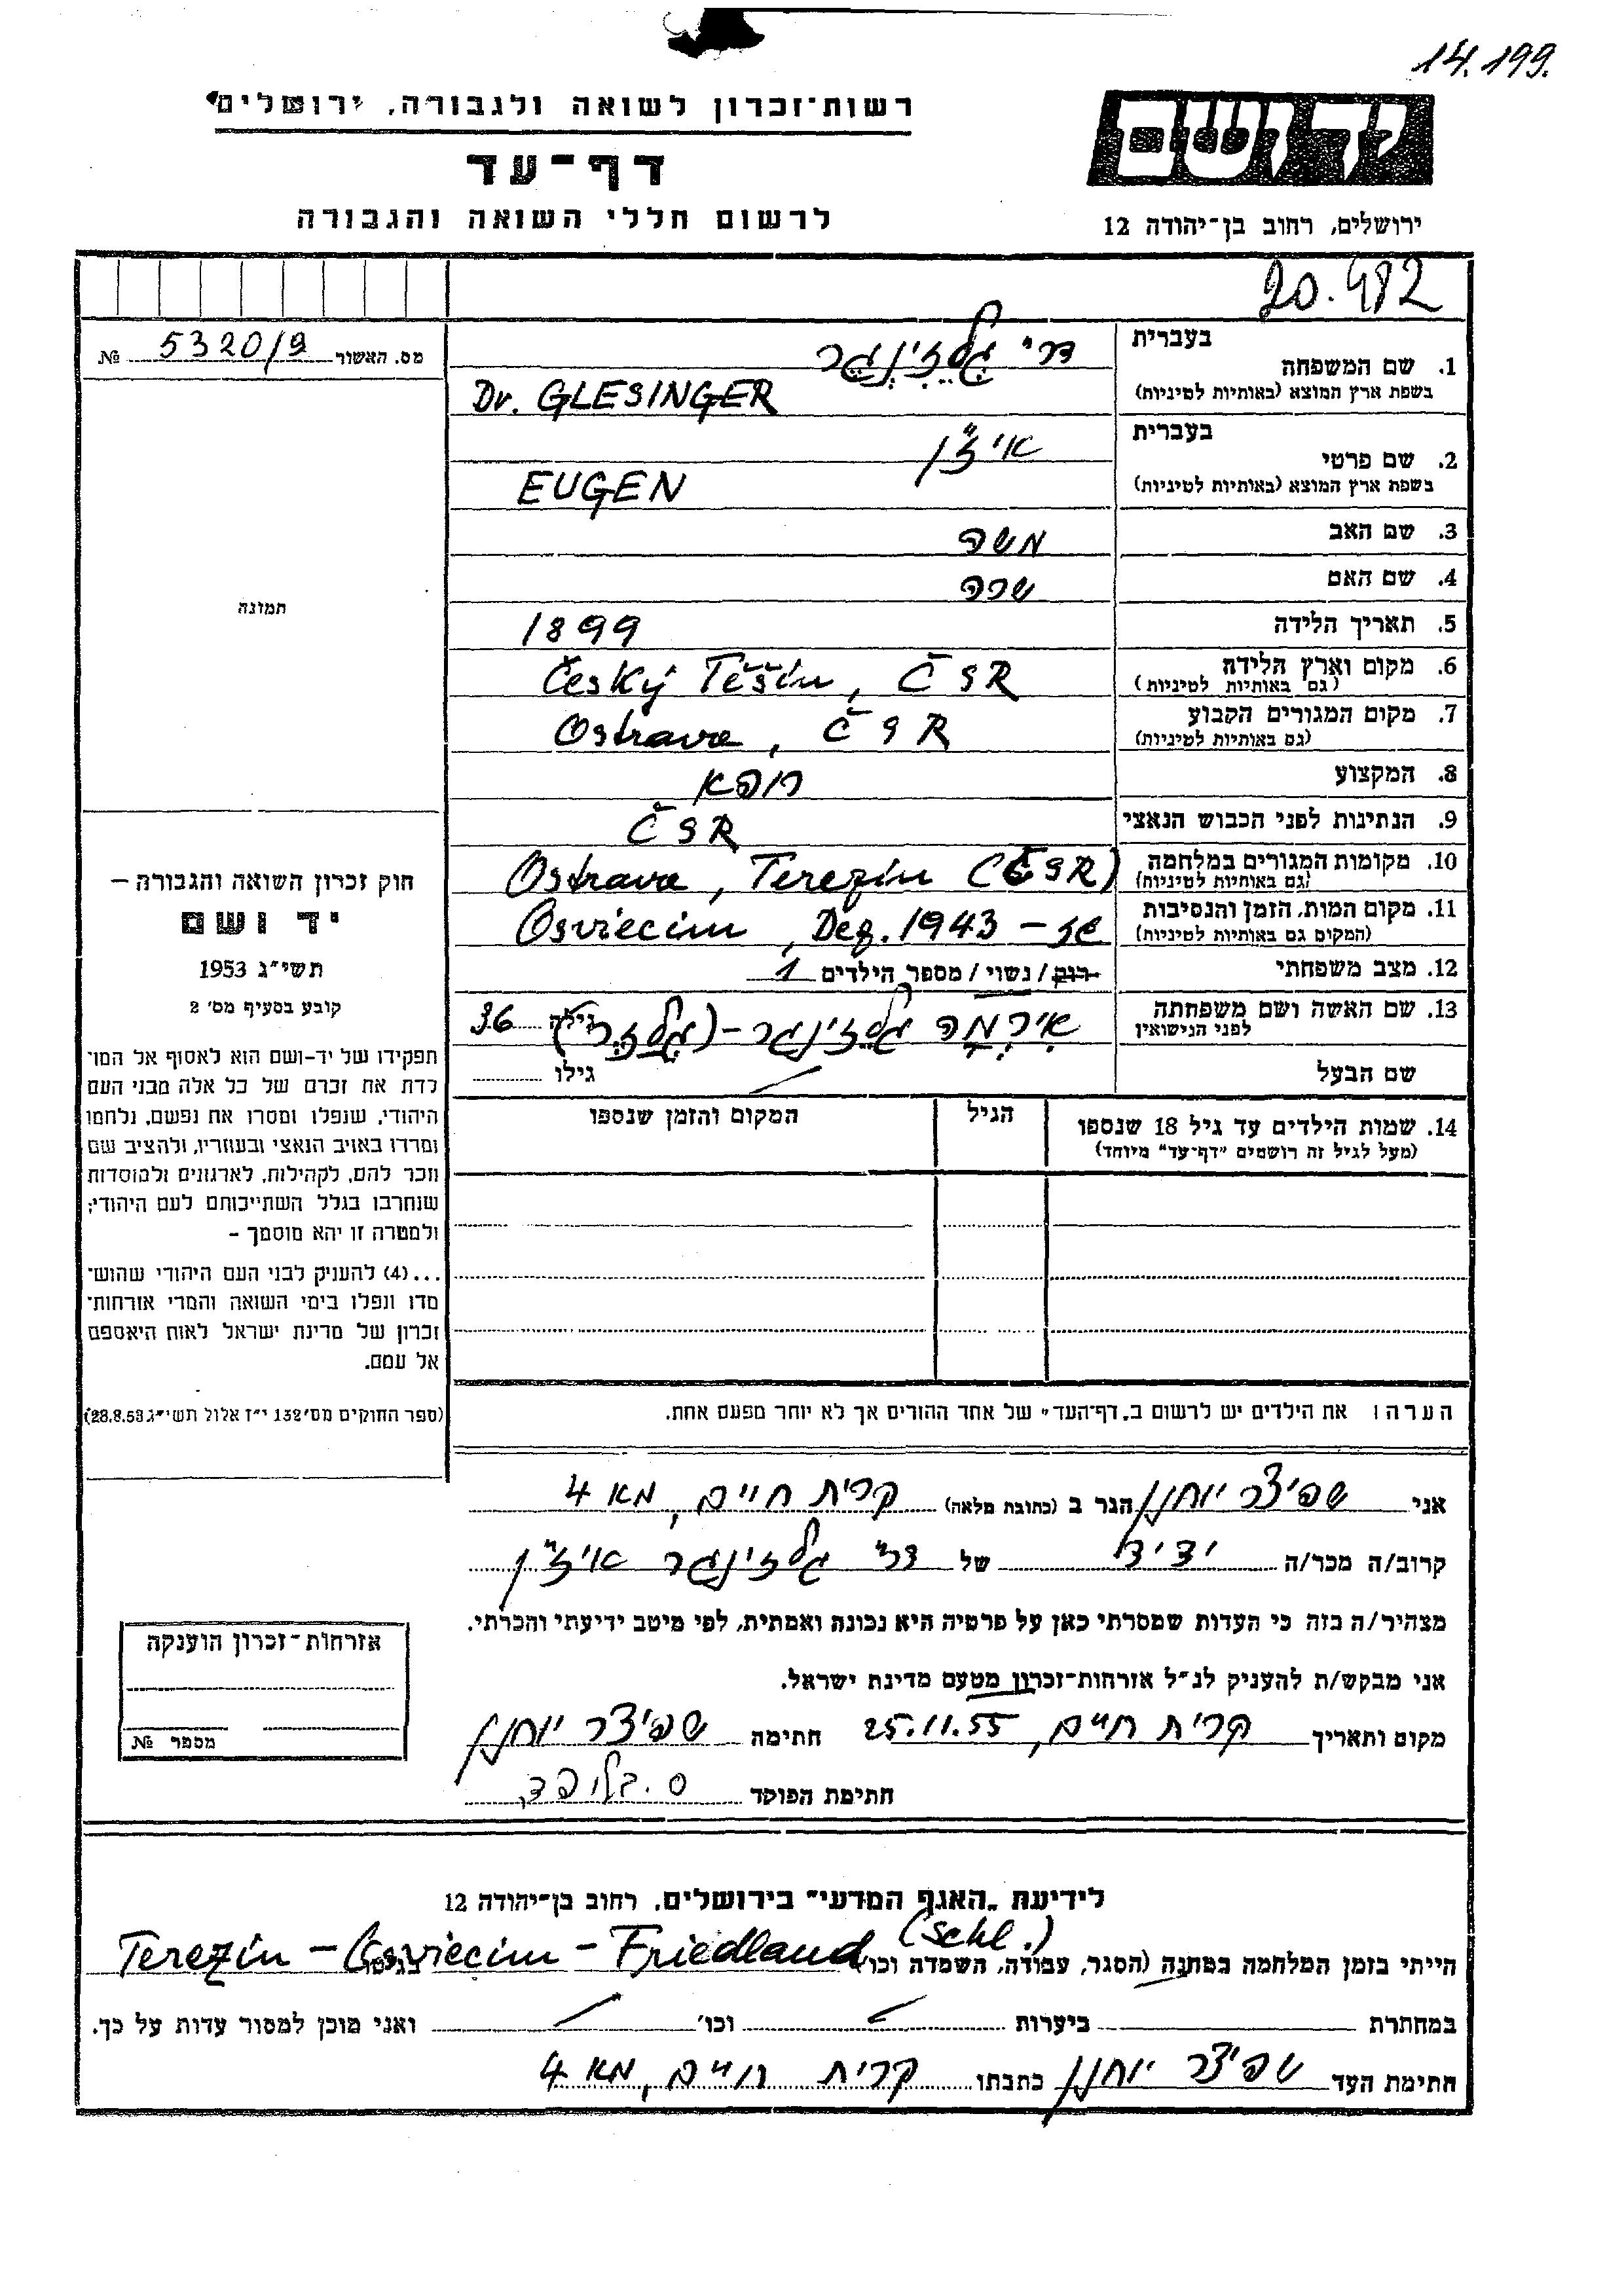 14.199.
רשות־זכרון לשואה ולגבורה, ירושלים
יד ושם
דף־עד
לרשום חללי השואה והגבורה
ירושלים, רחוב בן־יהודה 12
20.482
מס. האשור 5320/9 №
בעברית
1. שם המשפחה ד"ר גלזינגר
בשפת ארץ המוצא (באותיות לטיניות) Dr. GLESINGER
בעברית
2. שם פרטי
בשפת ארץ המוצא (באותיות לטיניות) EUGEN
3. שם האב משה
4. שם האם שרה
תמונה
5. תאריך הלידה 1899
6. מקום וארץ הלידה Český Těšín, ČSR
(גם באותיות לטיניות)
7. מקום המגורים הקבוע Ostrava, ČSR
(גם באותיות לטיניות)
8. המקצוע רופא
9. הנתינות לפני הכבוש הנאצי ČSR
10. מקומות המגורים במלחמה Ostrava, Terezín (ČSR)
(גם באותיות לטיניות)
11. מקום המות, הזמן והנסיבות Osviecim, Dez. 1943 –
(המקום גם באותיות לטיניות)
12. מצב משפחתי רווק / נשוי / מספר הילדים 1
13. שם האשה ושם משפחתה אירמה גלזינגר – (גלזר) גילה 36
לפני הנישואין
שם הבעל גילו
14. שמות הילדים עד גיל 18 שנספו הגיל המקום והזמן שנספו
(מעל לגיל זה רושמים "דף־עד" מיוחד)
חוק זכרון השואה והגבורה –
יד ושם
תשי"ג 1953
קובע בסעיף מס' 2
תפקידו של יד-ושם הוא לאסוף אל המו־
לדת את זכרם של כל אלה מבני העם
היהודי, שנפלו ומסרו את נפשם, נלחמו
ומרדו באויב הנאצי ובעוזריו, ולהציב שם
וזכר להם, לקהילות, לארגונים ולמוסדות
שנחרבו בגלל השתייכותם לעם היהודי;
ולמטרה זו יהא מוסמך –
...(4) להעניק לבני העם היהודי שהוש־
מדו ונפלו בימי השואה והמרי אזרחות־
זכרון של מדינת ישראל לאות היאספם
אל עמם.
(ספר החוקים מס' 132 י"ז אלול תשי"ג 28.8.53)
הערה: את הילדים יש לרשום ב"דף־העד" של אחד ההורים אך לא יותר מפעם אחת.
אני שפיצר יוחנן הגר ב (כתובת מלאה) קרית חיים, מא 4
קרוב/ה מכר/ה ידיד של ד"ר גלזינגר
מצהיר/ה בזה כי העדות שמסרתי כאן על פרטיה היא נכונה ואמתית, לפי מיטב ידיעתי והכרתי.
אני מבקש/ת להעניק לנ"ל אזרחות־זכרון מטעם מדינת ישראל.
מקום ותאריך קרית חיים, 25.11.55 חתימה שפיצר יוחנן
חתימת הפוקד
אזרחות־זכרון הוענקה
מספר №
לידיעת "האגף המדעי" בירושלים, רחוב בן־יהודה 12
הייתי בזמן המלחמה במחנה (הסגר, עבודה, השמדה וכו') Terezín – Osviecim – Friedland (Schl.)
במחתרת ביערות וכו' ואני מוכן למסור עדות על כך.
חתימת העד שפיצר יוחנן כתבתו קרית חיים, מא 4